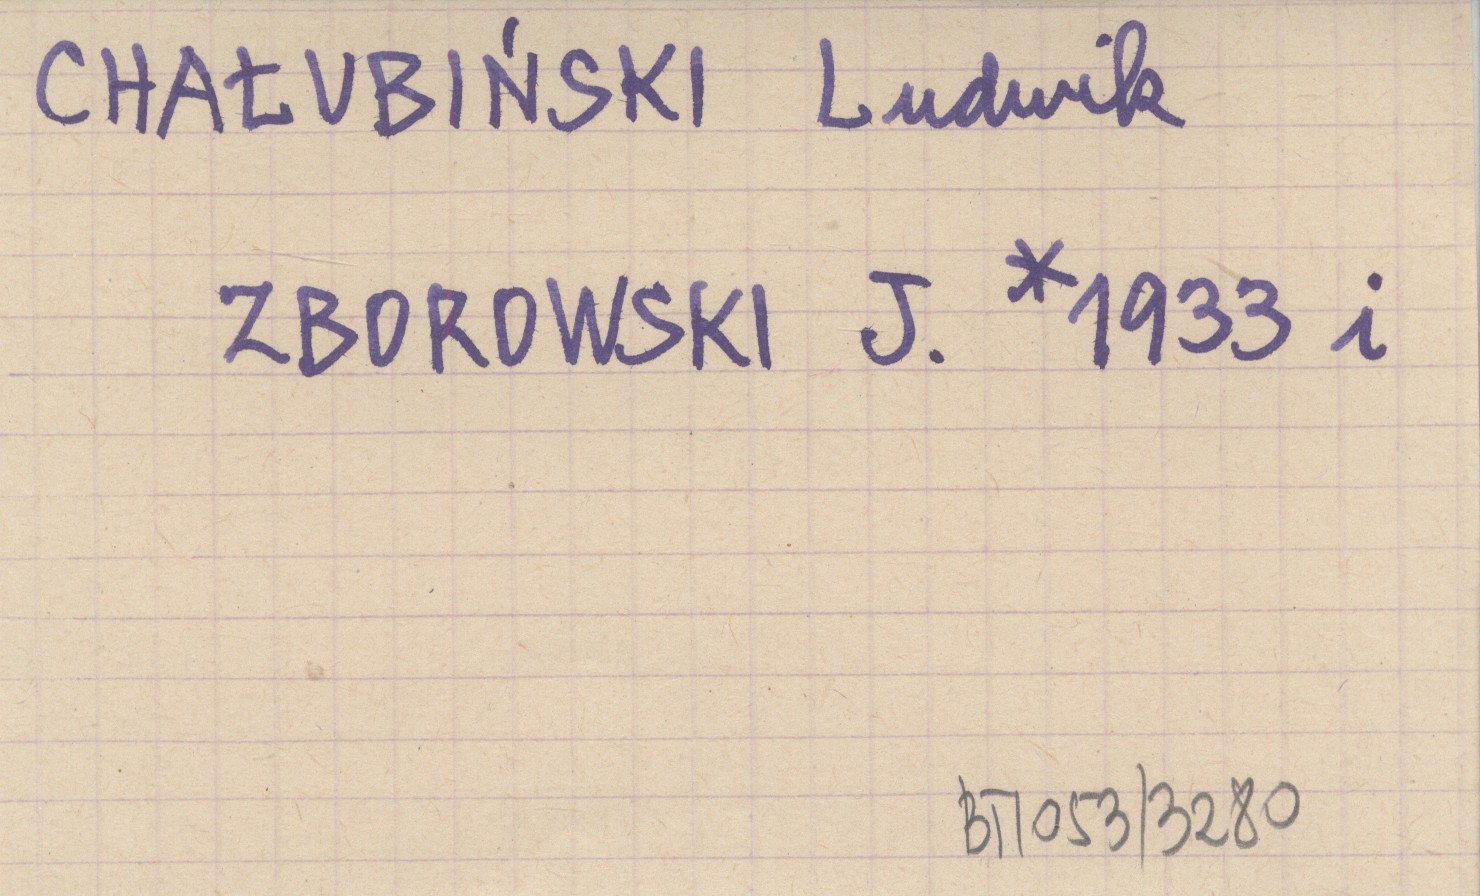 CHAŁUBIŃSKI Ludwik
ZBOROWSKI J. *1933 i
BTI 053/3280